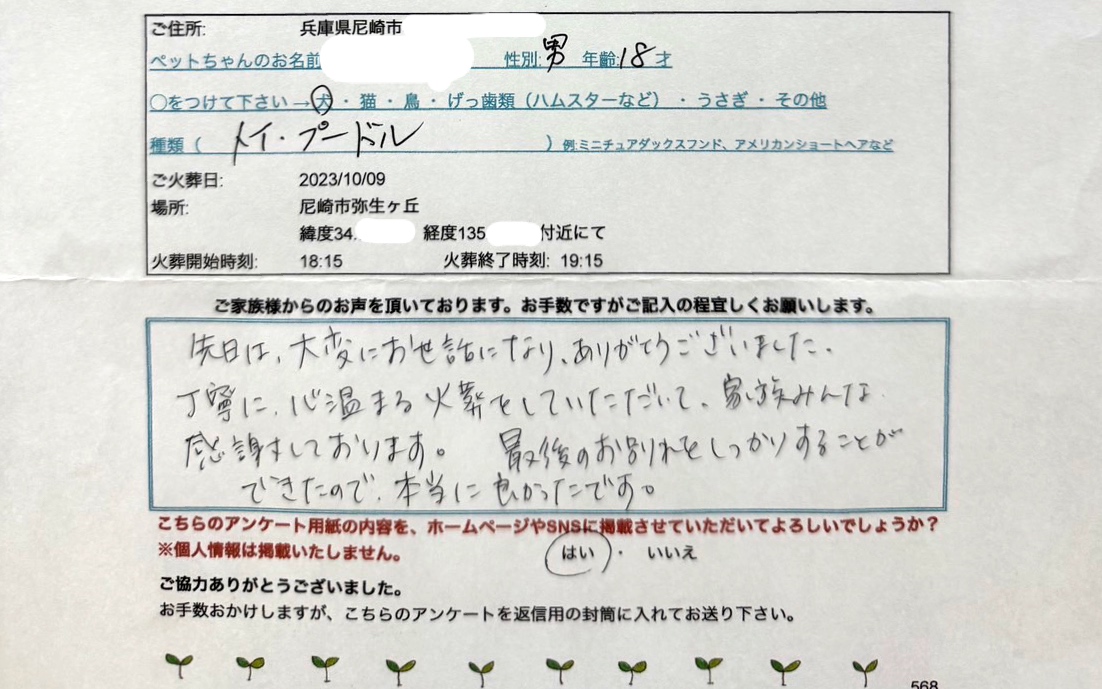 ご住所: 兵庫県尼崎市
ペットちゃんのお名前 性別:男 年齢:18才
○をつけて下さい→犬・猫・鳥・げっ歯類(ハムスターなど)・うさぎ・その他
種類( トイ・プードル )例:ミニチュアダックスフンド、アメリカンショートヘアなど
ご火葬日: 2023/10/09
場所: 尼崎市弥生ヶ丘
緯度34. 経度135 付近にて
火葬開始時刻: 18:15 火葬終了時刻: 19:15
ご家族様からのお声を頂いております。お手数ですがご記入の程宜しくお願いします。
先日は、大変にお世話になり、ありがとうございました。
丁寧に、心温まる火葬をしていただいて、家族みんな
感謝しております。 最後のお別れをしっかりすることが
できたので、本当に良かったです。
こちらのアンケート用紙の内容を、ホームページやSNSに掲載させていただいてよろしいでしょうか?
※個人情報は掲載いたしません。 はい ・ いいえ
ご協力ありがとうございました。
お手数おかけしますが、こちらのアンケートを返信用の封筒に入れてお送り下さい。
568